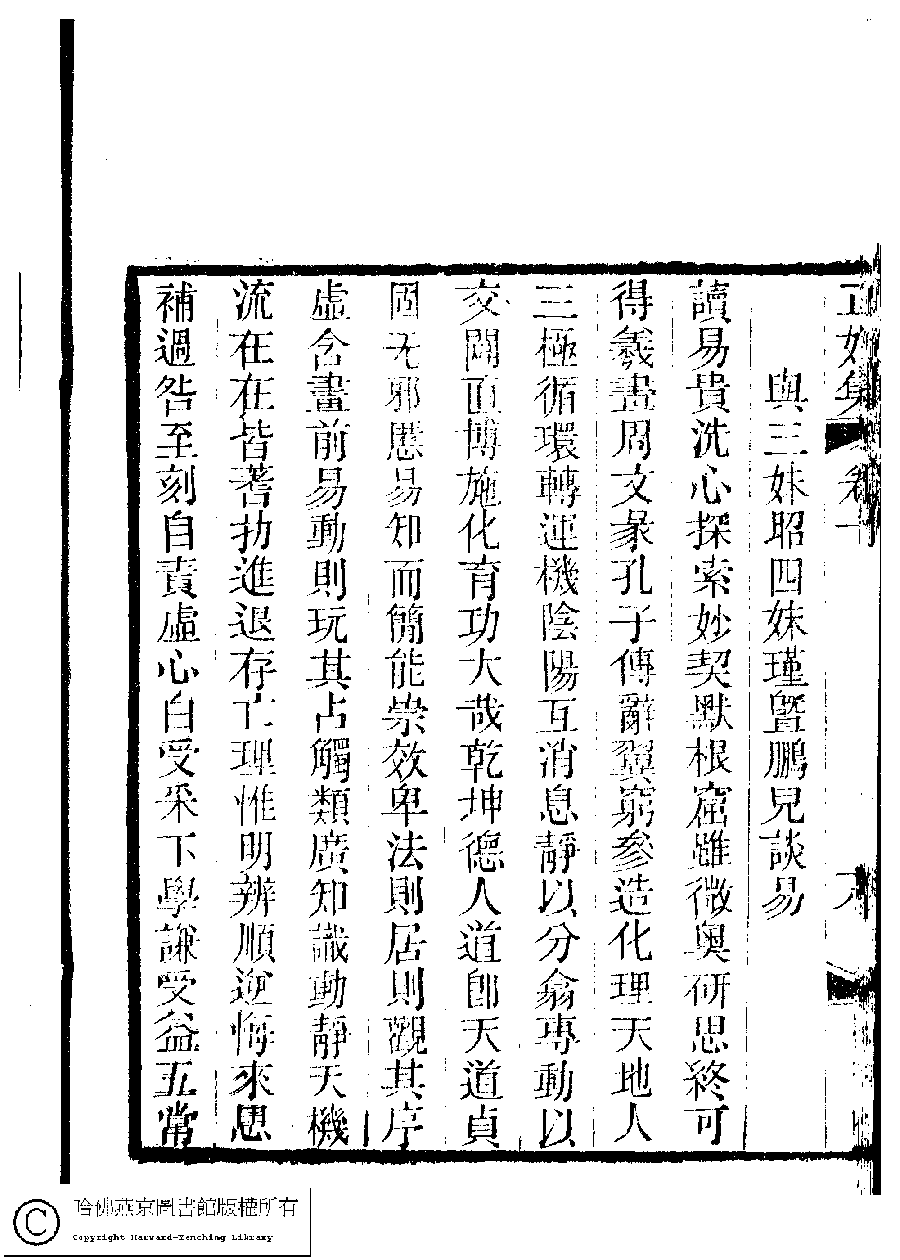 正始集 卷十
與三妹昭四妹瑾曁鵬兒談易
讀易貴洗心探索妙契默根窟雖微奧研思終可
得羲畫周文彖孔子傳辭翼窮參造化理天地人
三極循環轉運機陰陽互消息靜以分翕專動以
交闢直博施化育功大哉乾坤德人道卽天道貞
固无邪慝易知而簡能崇效卑法則居則觀其序
虛含畫前易動則玩其占觸類廣知識動靜天機
流在在皆著扐進退存亡理惟明辨順逆悔來思
補過咎至刻自責虛心白受采下學謙受益五常
哈佛燕京圖書館版權所有
Copyright Harvard-Yenching Library